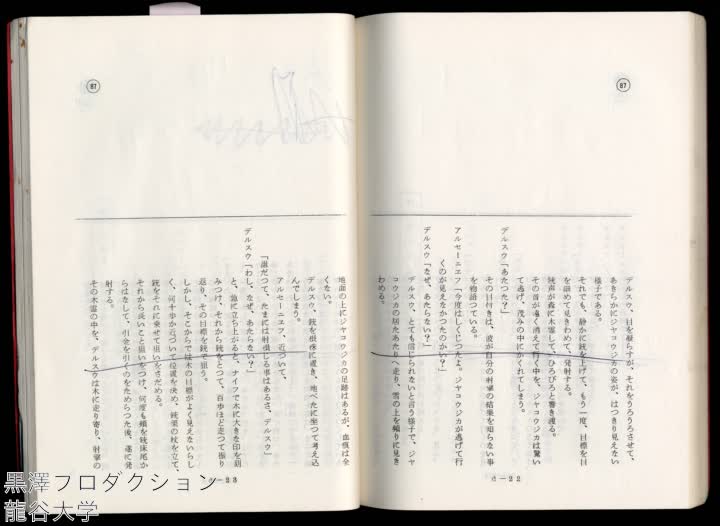 87
デルスウ、目を凝らすが、それをうろうろさせて、
あきらかにジャコウジカの姿が、はつきり見えない
様子である。
それでも、静かに銃を上げて、もう一度、目標を目
を細めて見きわめて、発射する。
銃声が森に木霊して、ひろびろと響き渡る。
その音が遠く消えて行く中を、ジャコウジカは驚い
て逃げ、茂みの中にかくれてしまう。
デルスウ「あたつた？」
その目付きは、彼が自分の射撃の結果を知らない事
を物語っている。
アルセーニエフ「今度はしくじつたよ。ジャコウジカが逃げて行
くのが見えなかつたのかい？」
デルスウ「なぜ、あたらない？」
デルスウ、とても信じられないと言う様子で、ジャ
コウジカの居たあたりへ走り、雪の上を頻りに見き
わめる。
d—22
87
地面の上にジャコウジカの足跡はあるが、血痕は全
くない。
デルスウ、銃を根株に置き、地べたに坐つて考え込
んでしまう。
アルセーニエフ、近づいて、
「誰だつて、たまには射損じる事はあるさ、デルスウ」
デルスウ「わし、なぜ、あたらない？」
と、急に立ち上がると、ナイフで木に大きな印を刻
みつけ、それから銃をとつて、百歩ほど走つて振り
返り、その目標を銃で狙う。
しかし、そこからでは木の目標がよく見えないらし
く、何十歩か近づいて位置を決め、銃架の杖を立て、
銃をそれに乗せて狙いをさだめる。
それから長いこと狙いをつけ、何度も頬を銃床尾か
らはなして、引金を引くのをためらつた後、遂に発
射する。
その木霊の中を、デルスウは木に走り寄り、射撃の
d—23
黒澤プロダクション
龍谷大学